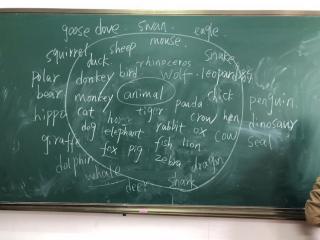 goose dove swan. eagle
mouse.
squirrel duck sheep snake
rhinoceros
polar donkey bird wolf. leopard
bear monkey animal panda chick penguin
hippo cat tiger crow hen dinosaur
dog horse rabbit ox cow seal
elephant
giraffe fox pig fish lion
dolphin zebra dragon
whale deer shark